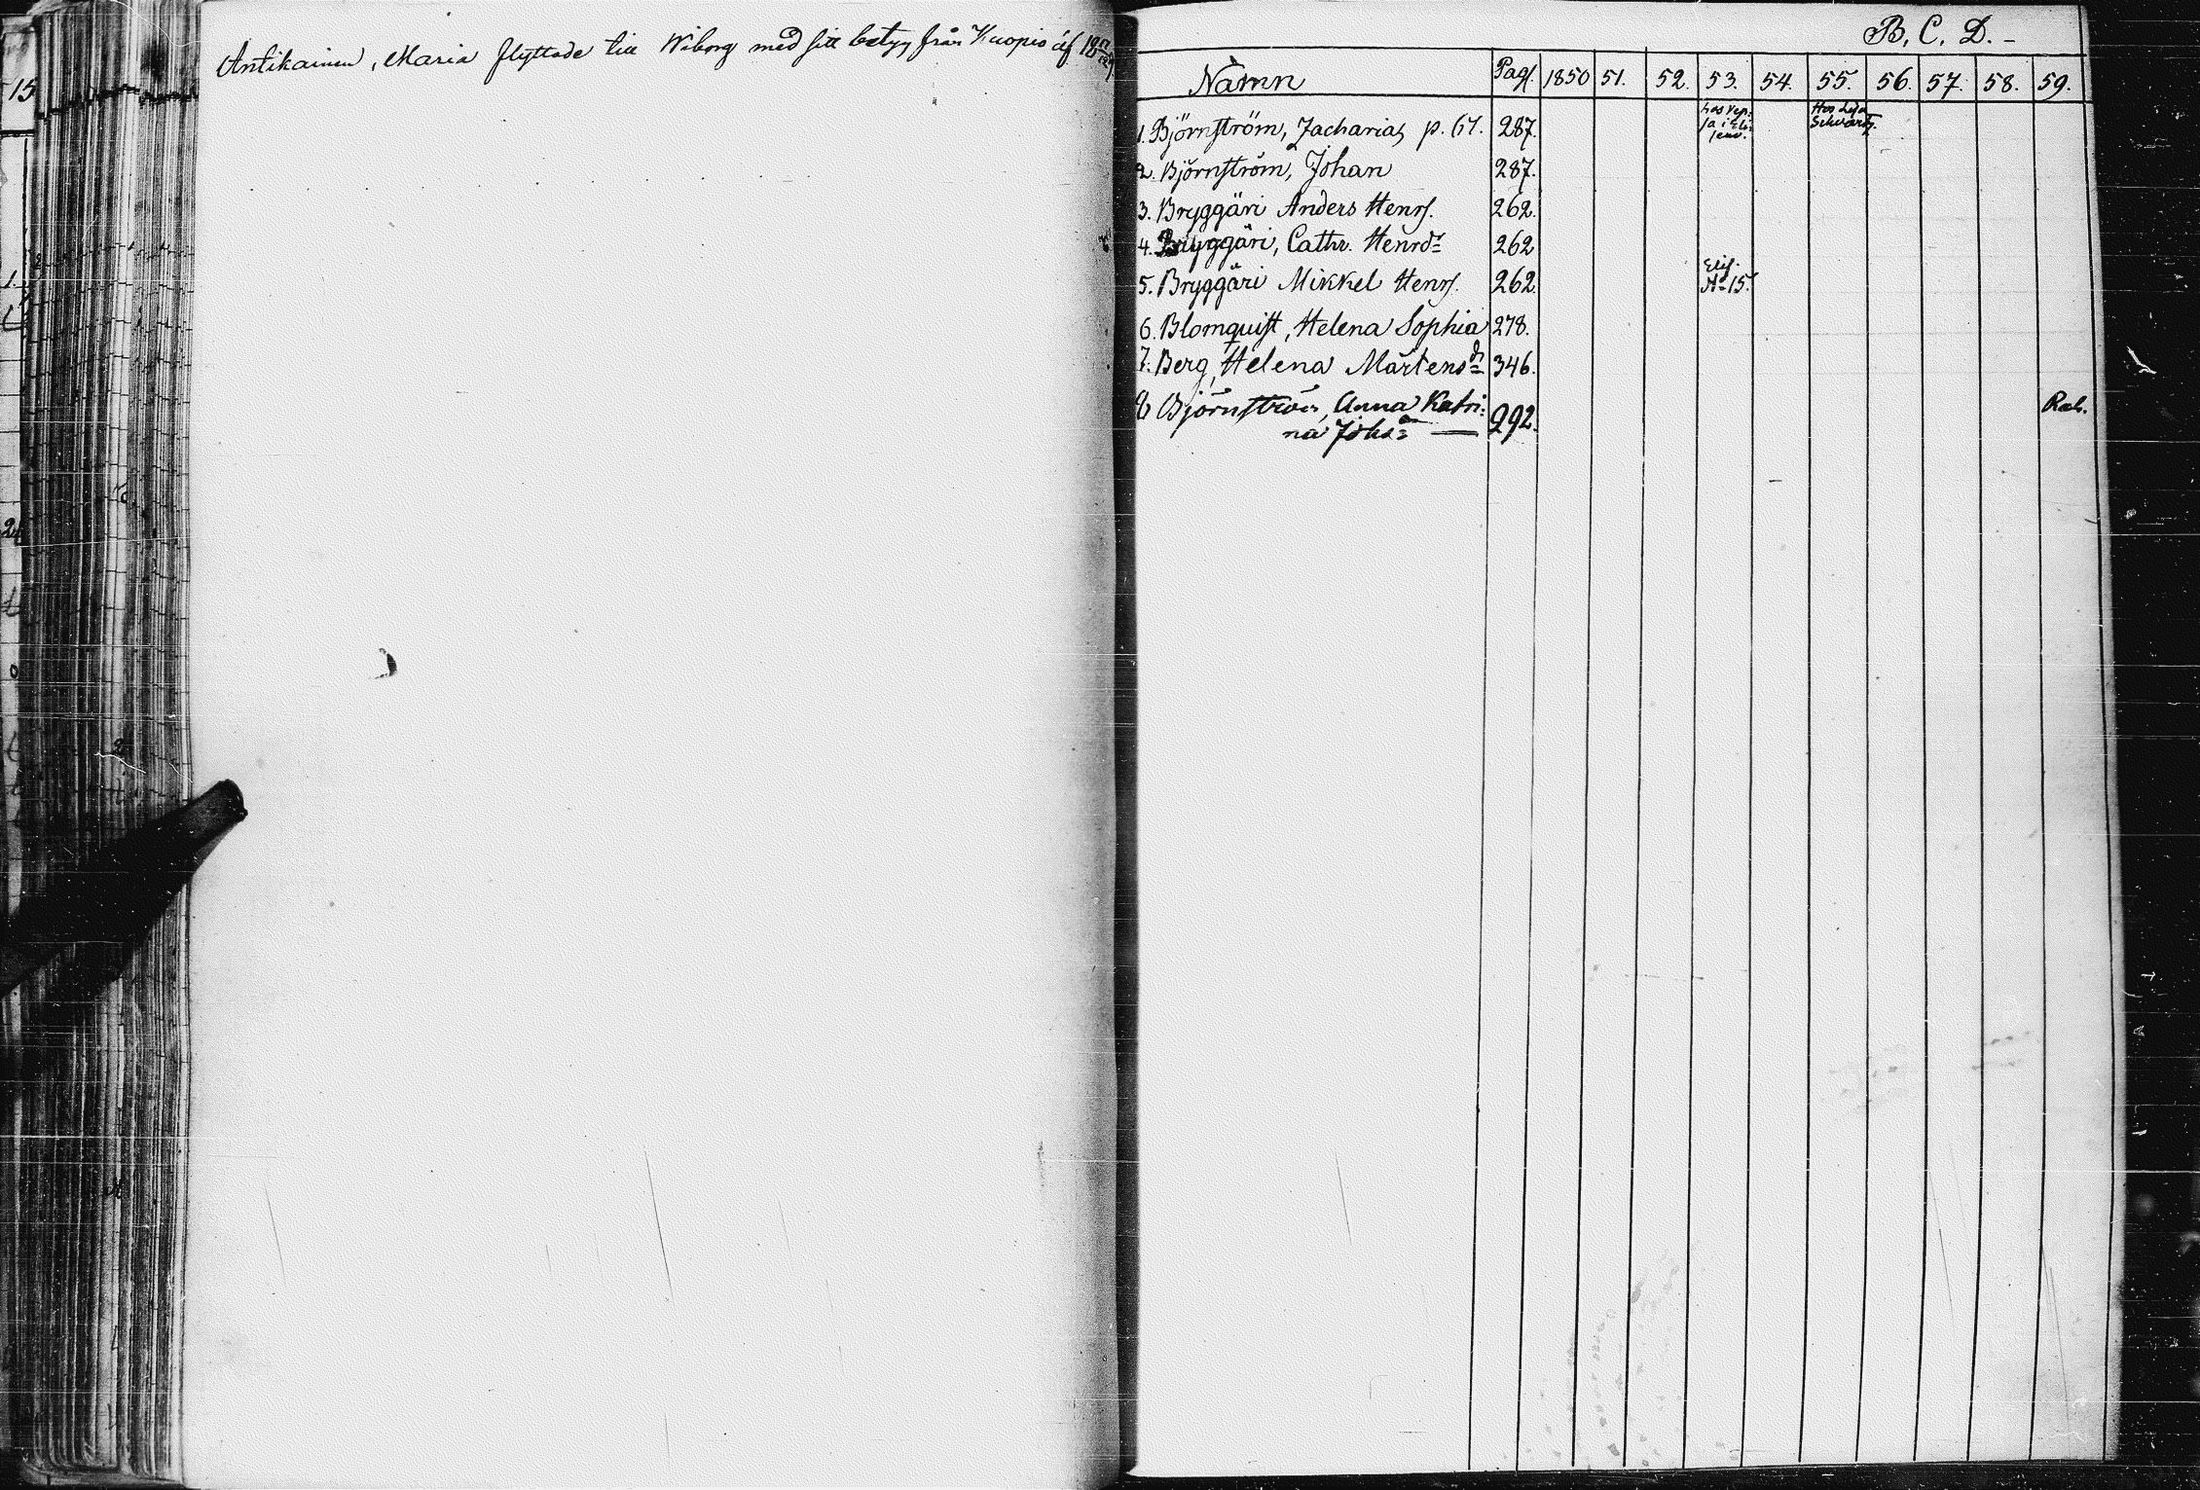 Antikainen, Maria flyttade till Wiborg med sitt betyg från Kuopio af
B. C. D. -
Namn Pag. 1850 51. 52. 53. 54. 55. 56. 57. 58. 59.
1. Björnström, Zacharias p. 67. 287. Hos
Schvartz.
2. Björnström, Johan 287.
3. Bryggäri Anders Henrs. 262.
4. Bryggäri, Cathr. Henrdr 262
5. Bryggäri Mikkel Henrs. 262 Elis.
No 15.
6. Blomquist, Helena Sophia 278.
7. Berg, Helena Mårtensdr 346.
8 Björnström, Anna Katri-
na Johsdr — 292. Rab.